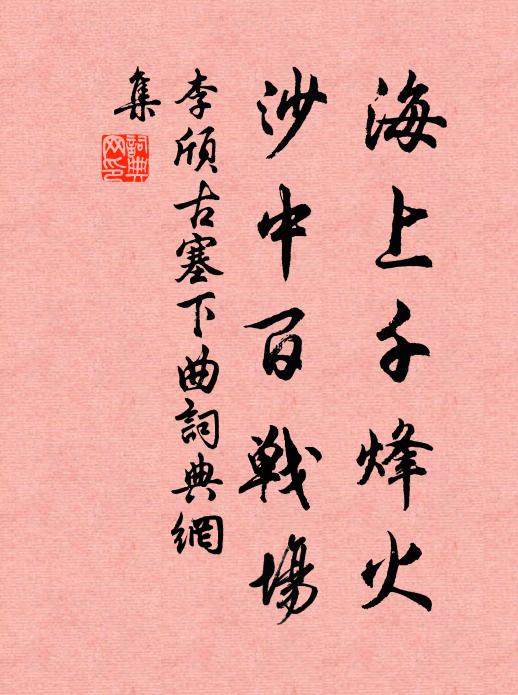 海上千烽火
沙中百戰場
李頎古塞下曲詞典網
集
詞典
网印